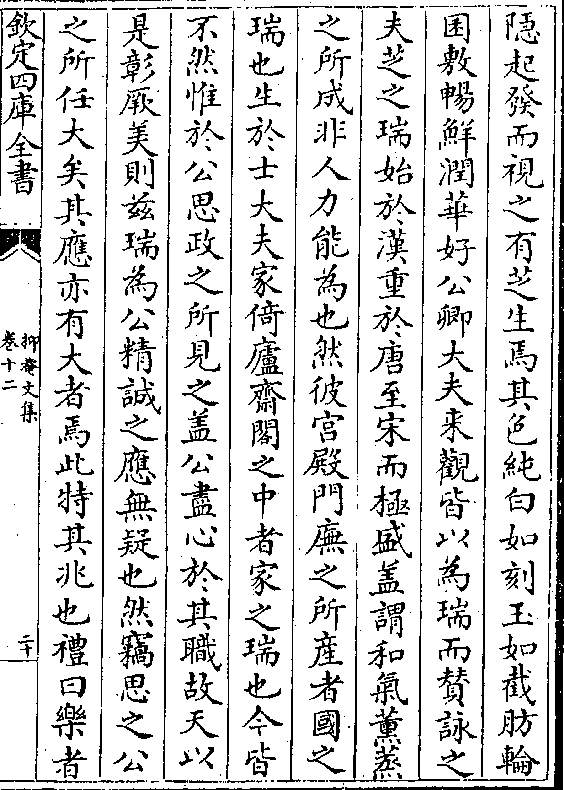 隠起發而視之有芝生焉其色純白如刻玉如截肪輪
囷敷暢鮮潤華好公卿大夫来觀皆以為瑞而賛詠之
夫芝之瑞始於漢重於唐至宋而極盛盖謂和氣薫蒸
之所成非人力能為也然彼宫殿門廡之所産者國之
瑞也生於士大夫家倚廬齋閣之中者家之瑞也今皆
不然惟於公思政之所見之盖公盡心於其職故天以
是彰厥美則兹瑞為公精誠之應無疑也然竊思之公
之所任大矣其應亦有大者焉此特其兆也禮曰樂者
欽定四庫全書
抑菴文集
卷十二
二十